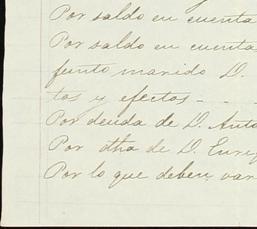 Por saldo en cuenta
Por saldo en cuenta
funto marido D.
tos y efectos - -
Por deuda de D. Anto
Por dha de D.
Por lo que deben, var